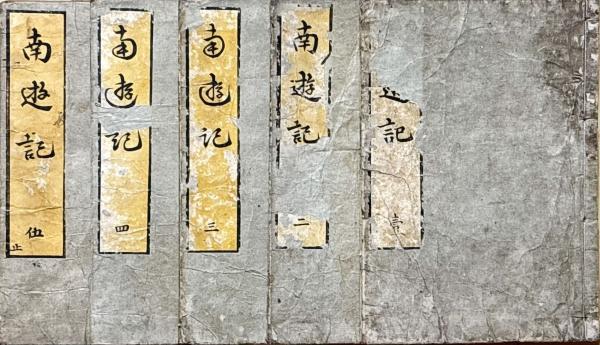 遊記 壹
南遊記 二
南遊記 三
南遊記 四
南遊記 伍
止